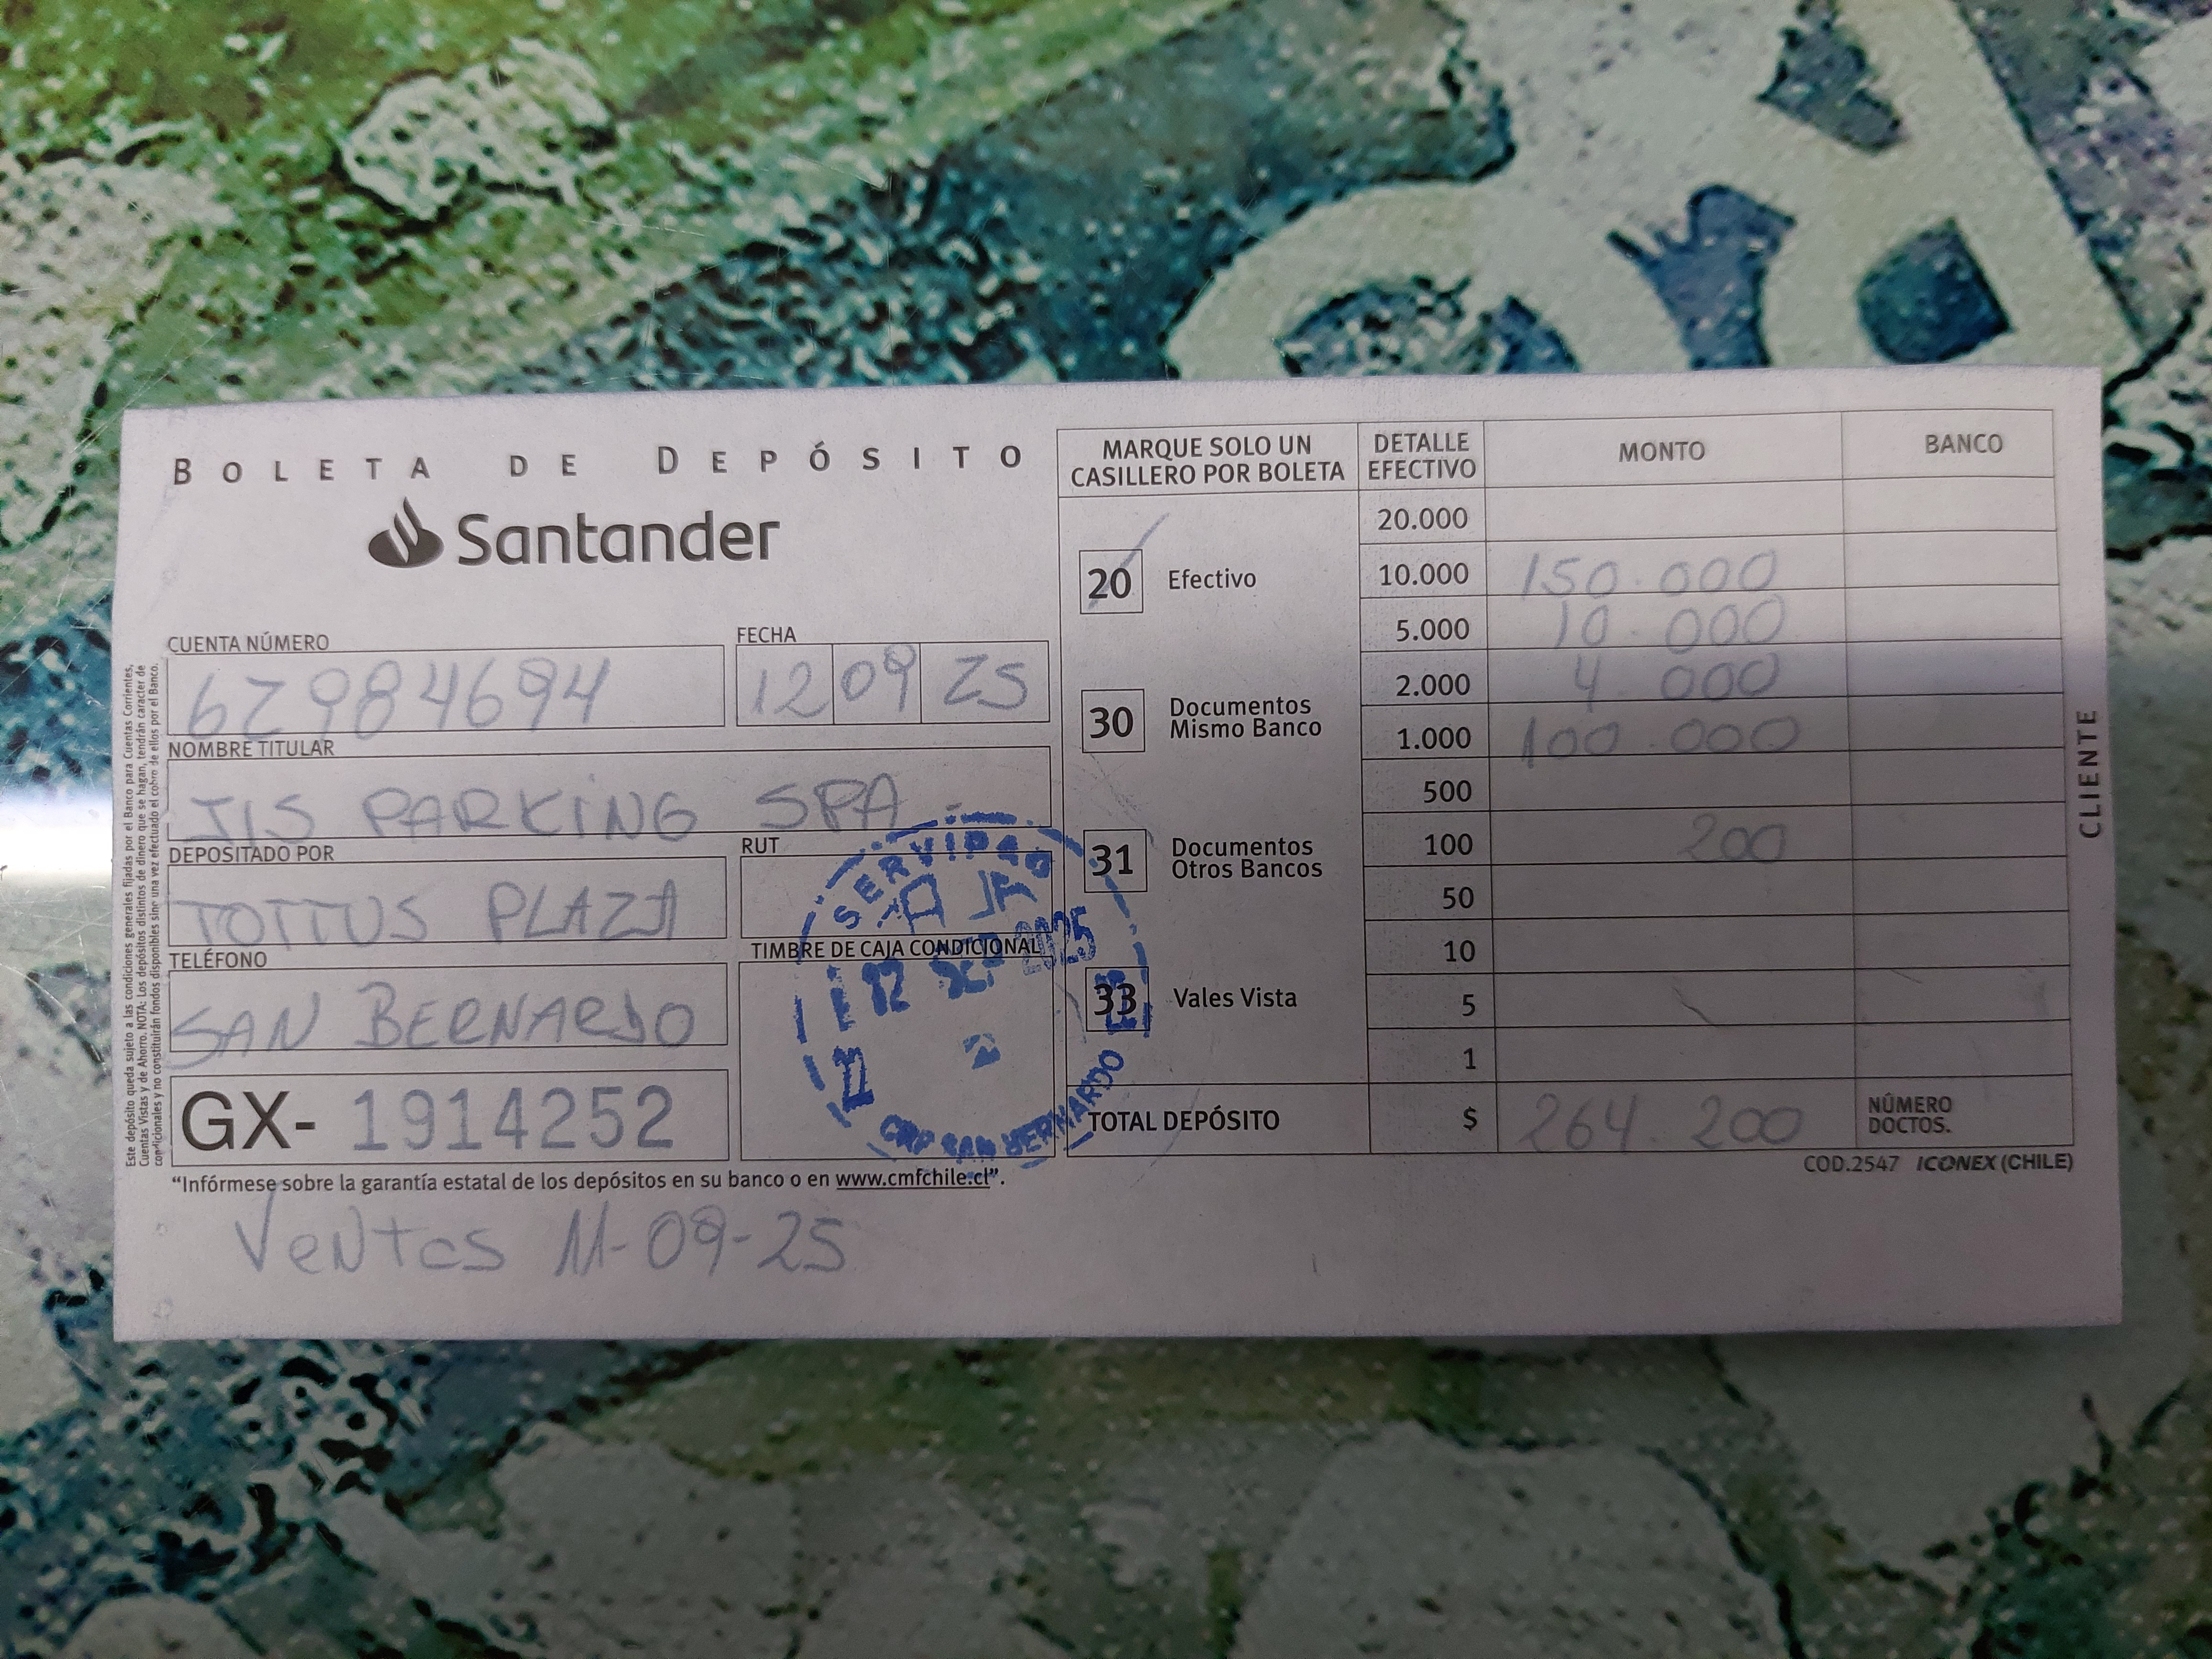 BOLETA DE DEPÓSITO
Santander
CUENTA NÚMERO
62984694
FECHA
12 09 25
NOMBRE TITULAR
JIS PARKING SPA
DEPOSITADO POR
TOTTUS PLAZA
RUT
TELÉFONO
SAN BERNARDO
TIMBRE DE CAJA CONDICIONAL
GX- 1914252
"Infórmese sobre la garantía estatal de los depósitos en su banco o en www.cmfchile.cl".
Ventas 11-09-25
Este depósito queda sujeto a las condiciones generales fijadas por el Banco para Cuentas Corrientes,
Cuentas Vistas y de Ahorro. NOTA: Los depósitos distintos de dinero que se hagan, tendrán carácter de
condicionales y no constituirán fondos disponibles sino una vez efectuado el cobro de ellos por el Banco.
SERVIPAG
12 SEP 2025
22
CRP SAN BERNARDO
MARQUE SOLO UN
CASILLERO POR BOLETA
20 Efectivo
30 Documentos
Mismo Banco
31 Documentos
Otros Bancos
33 Vales Vista
DETALLE
EFECTIVO
MONTO
BANCO
20.000
10.000 150.000
5.000 10.000
2.000 4.000
1.000 100.000
500
100 200
50
10
5
1
TOTAL DEPÓSITO $ 264.200
NÚMERO
DOCTOS.
COD.2547 ICONEX (CHILE)
CLIENTE